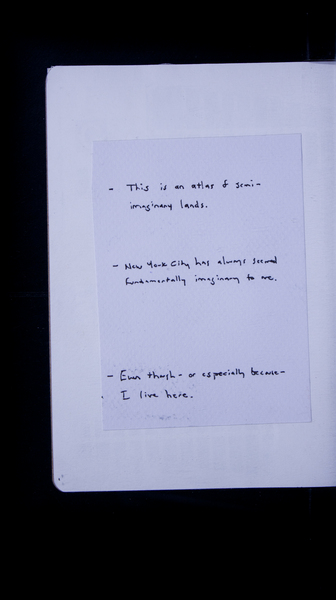 - This is an atlas of semi-
imaginary lands.
- New York City has always seemed
fundamentally imaginary to me.
- Even though - or especially because -
I live here.